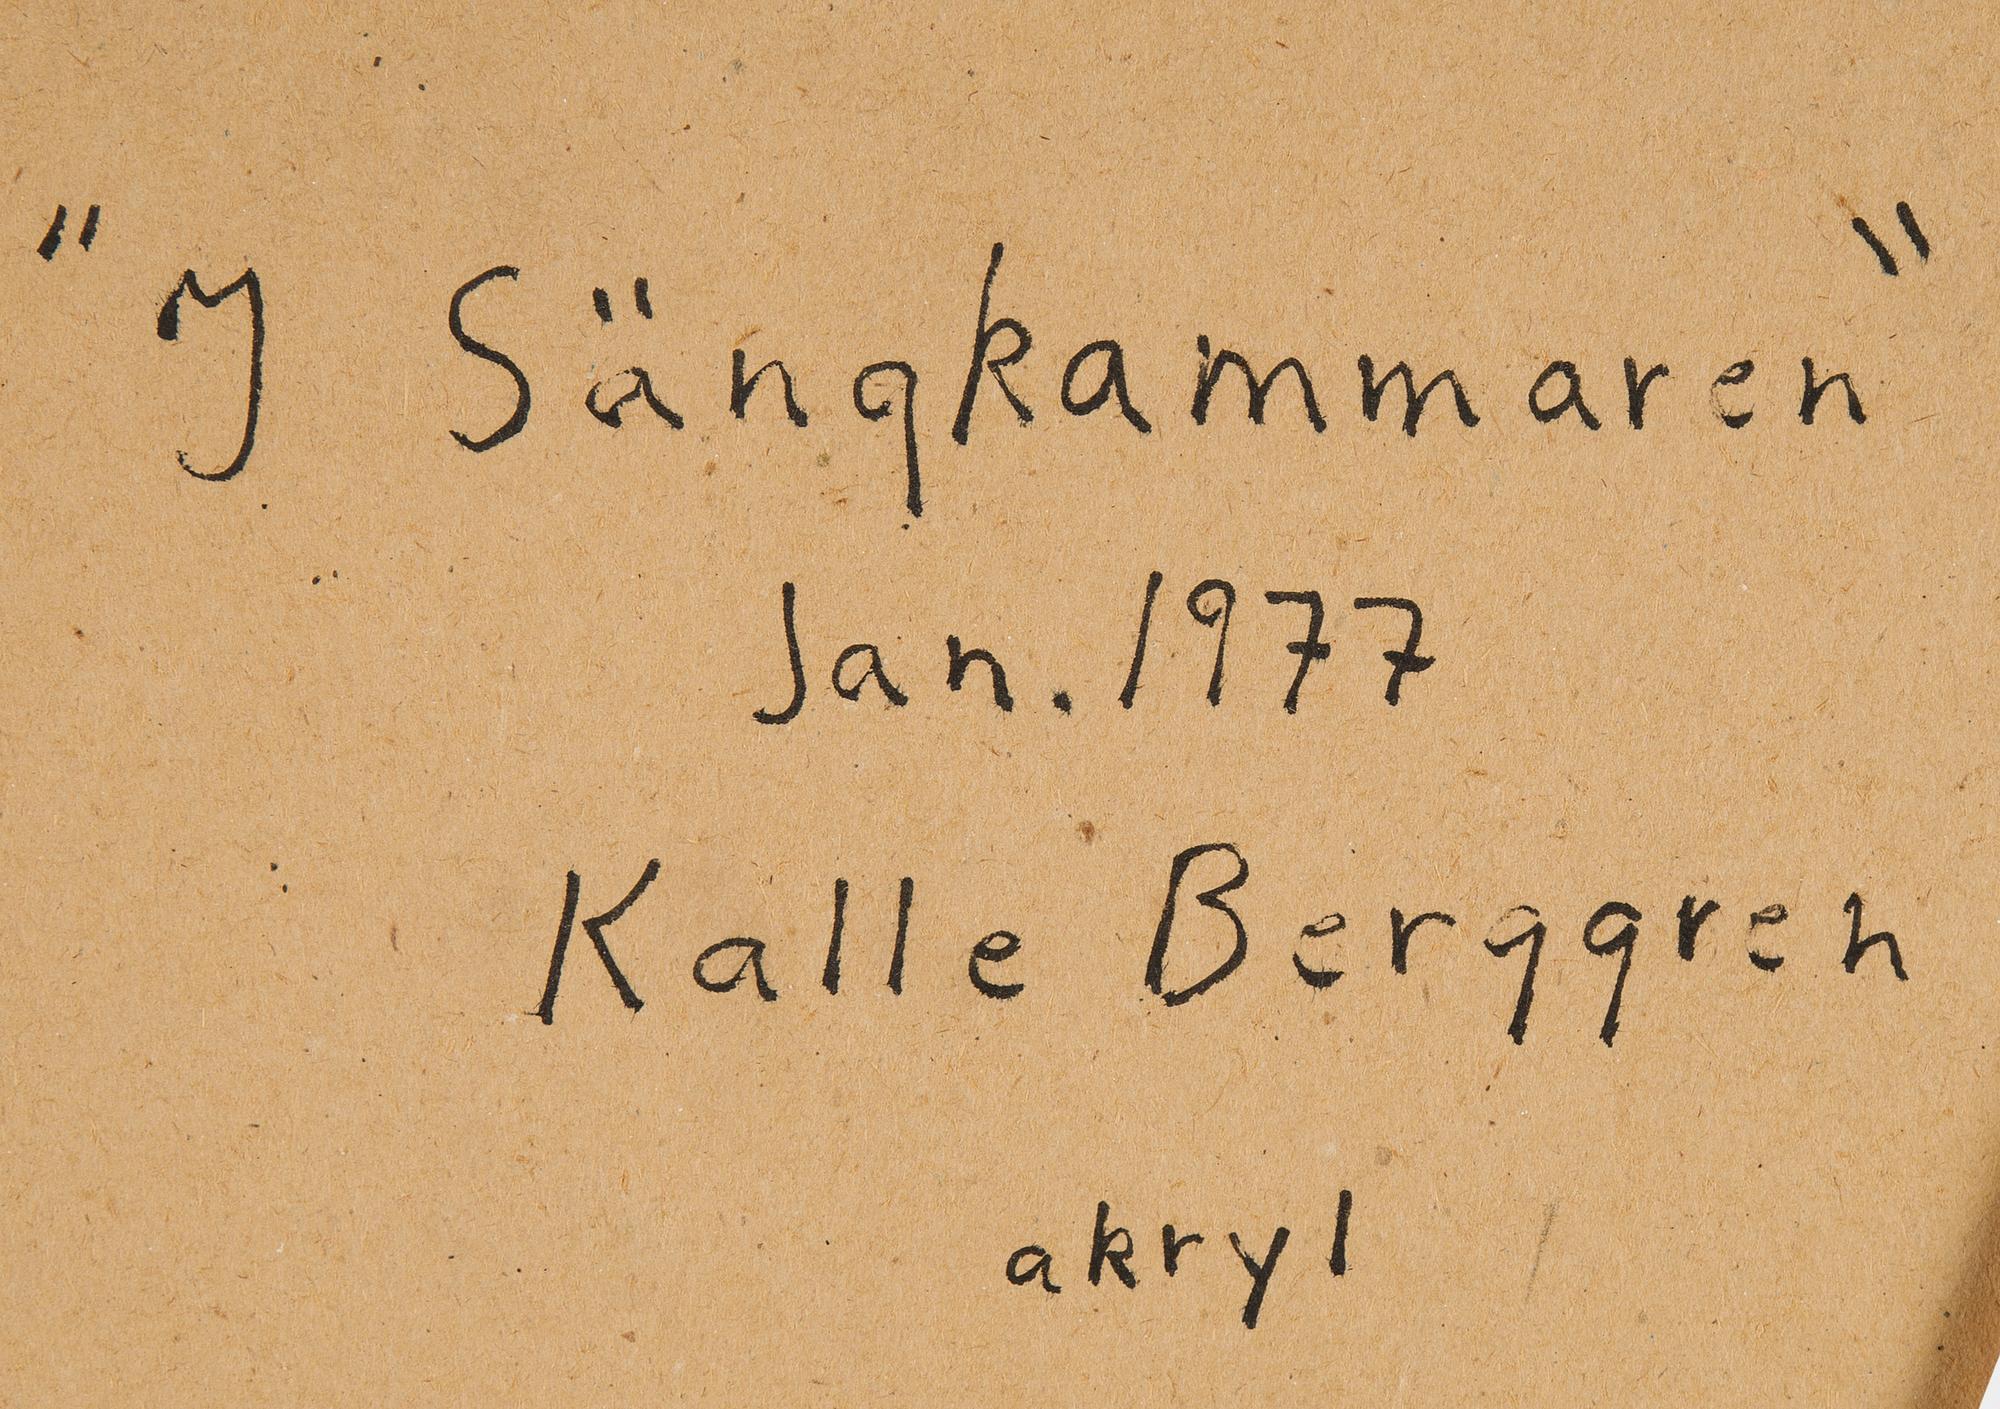 "I Sängkammaren"
Jan. 1977
Kalle Berggren
akryl